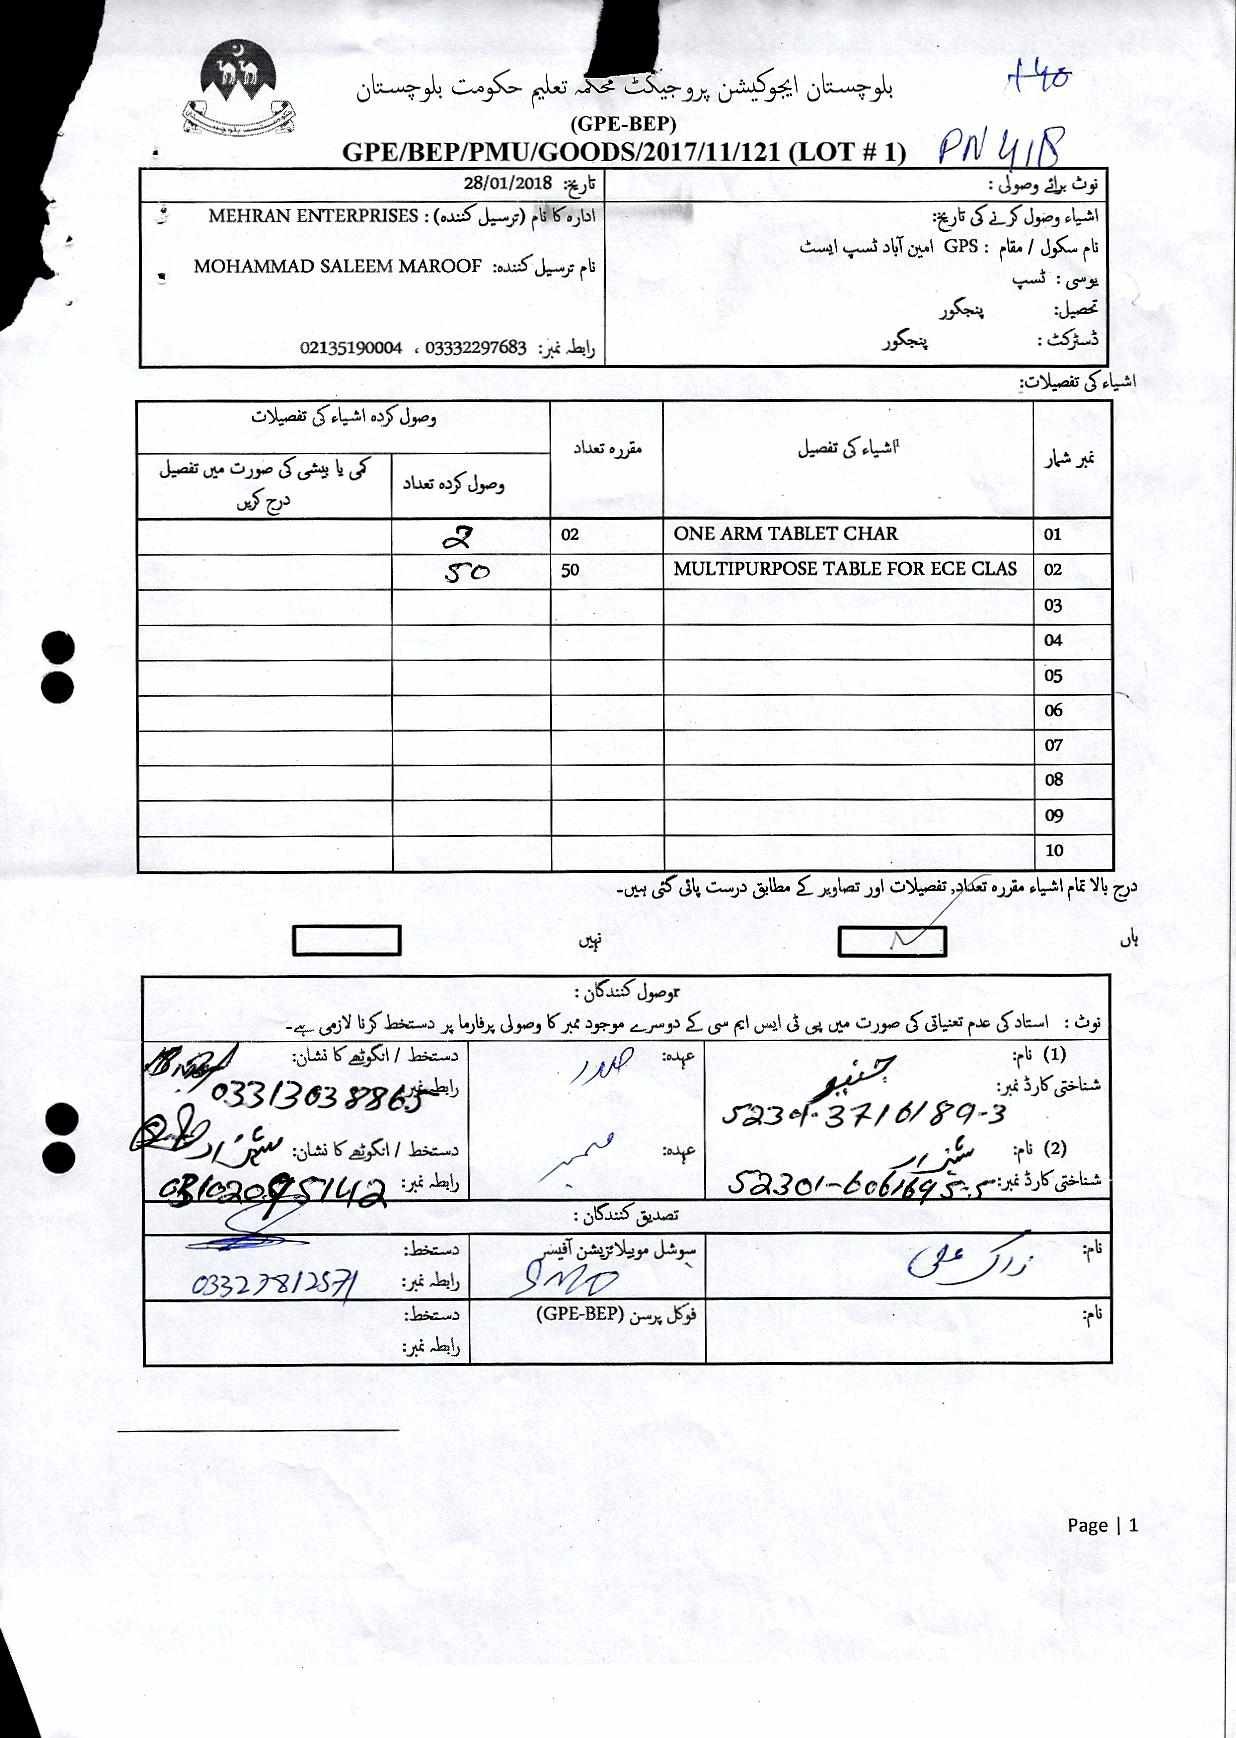 بلوچستان ایجوکیشن پروجیکٹ محکمہ تعلیم حکومت بلوچستان
(GPE-BEP)
GPE/BEP/PMU/GOODS/2017/11/121 (LOT # 1)
PN 418
نوٹ برائے وصولی :
تاریخ: 28/01/2018
اشیاء وصول کرنے کی تاریخ:
ادارہ کا نام (ترسیل کنندہ) : MEHRAN ENTERPRISES
نام سکول / مقام : GPS امین آباد ٹسپ ایسٹ
نام ترسیل کنندہ: MOHAMMAD SALEEM MAROOF
یوسی : ٹسپ
تحصیل: پنجگور
ڈسٹرکٹ : پنجگور
رابطہ نمبر: 03332297683 ، 02135190004
اشیاء کی تفصیلات:
نمبر شمار
اشیاء کی تفصیل
مقررہ تعداد
وصول کردہ اشیاء کی تفصیلات
وصول کردہ تعداد
کمی یا بیشی کی صورت میں تفصیل درج کریں
01 ONE ARM TABLET CHAR 02 2
02 MULTIPURPOSE TABLE FOR ECE CLAS 50 50
03
04
05
06
07
08
09
10
درج بالا تمام اشیاء مقررہ تعداد, تفصیلات اور تصاویر کے مطابق درست پائی گئی ہیں۔
ہاں
نہیں
وصول کنندگان :
نوٹ : استاد کی عدم تعنیاتی کی صورت میں پی ٹی ایس ایم سی کے دوسرے موجود ممبر کا وصولی پرفارما پر دستخط کرنا لازمی ہے۔
(1) نام:
عہدہ: صدر
دستخط / انگوٹھے کا نشان:
شناختی کارڈ نمبر: 52301-3716189-3
رابطہ نمبر: 03313038865
(2) نام:
عہدہ: ممبر
دستخط / انگوٹھے کا نشان:
شناختی کارڈ نمبر:
رابطہ نمبر:
تصدیق کنندگان :
نام:
سوشل موبیلائزیشن آفیسر
SMO
دستخط:
رابطہ نمبر: 03327812571
نام:
فوکل پرسن (GPE-BEP)
دستخط:
رابطہ نمبر:
Page | 1